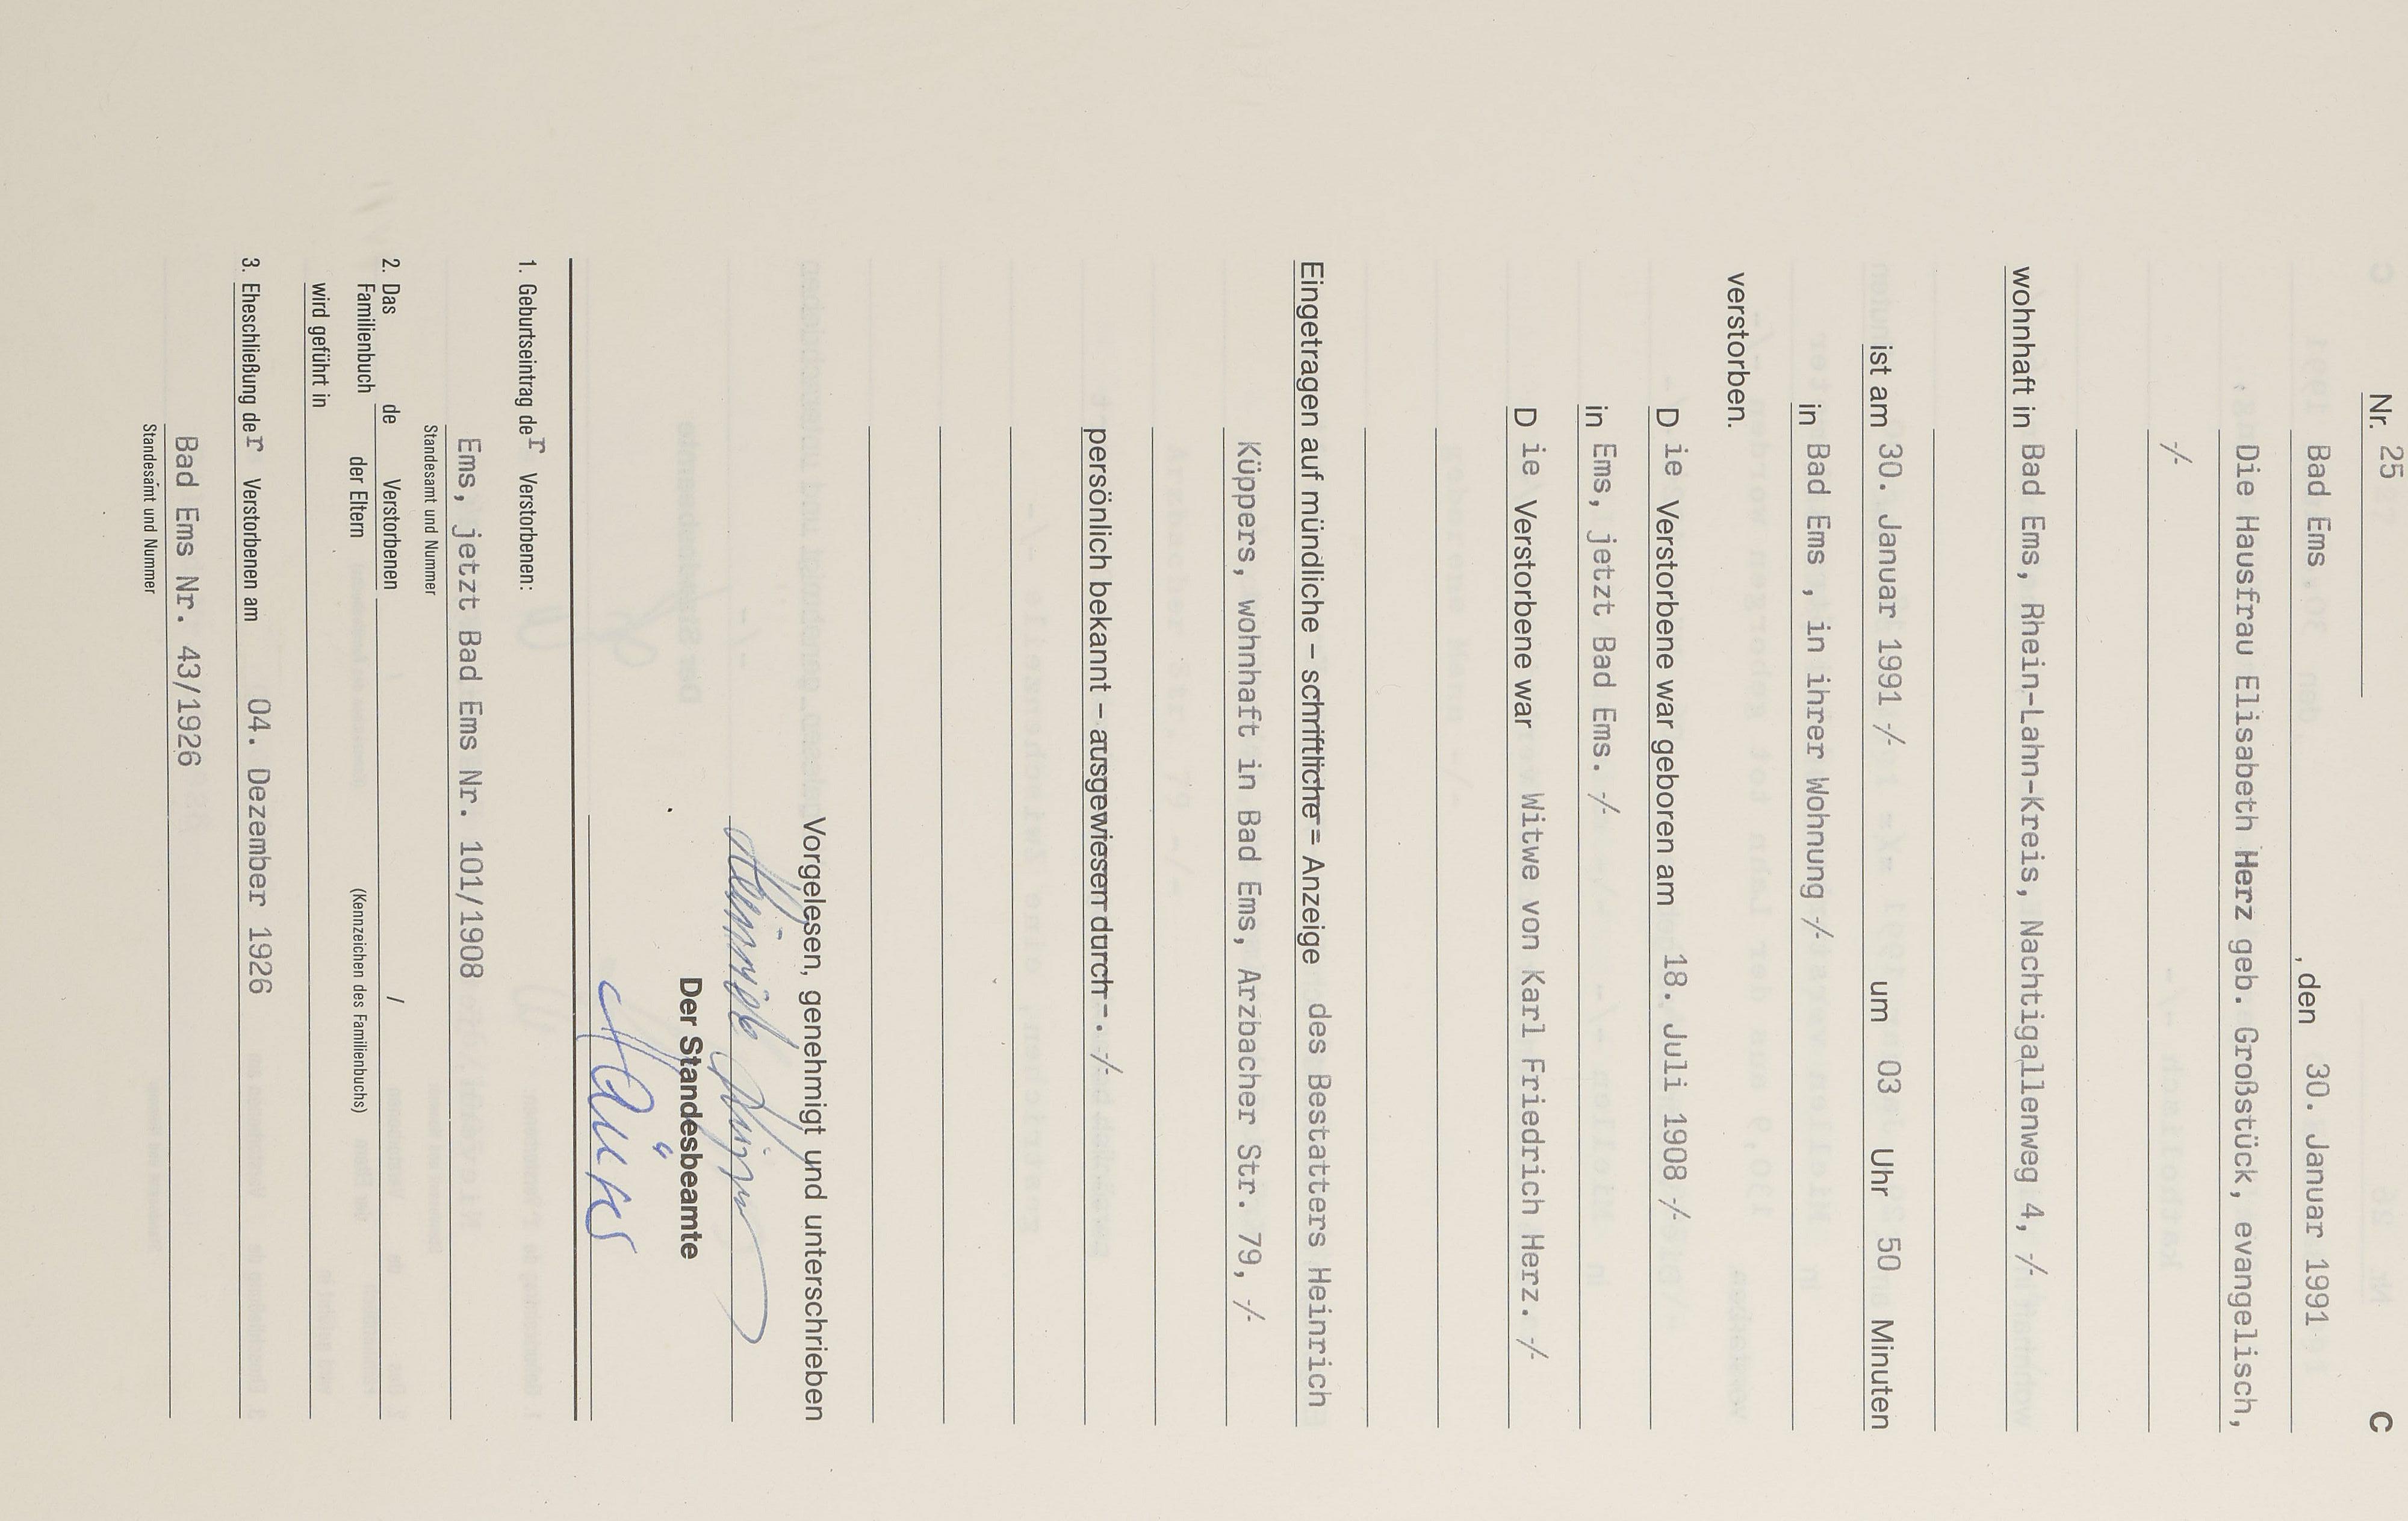 Nr. 25 C
Bad Ems , den 30. Januar 1991
Die Hausfrau Elisabeth Herz geb. Großstück, evangelisch,
-/-
wohnhaft in Bad Ems, Rhein-Lahn-Kreis, Nachtigallenweg 4, -/-
ist am 30. Januar 1991 -/- um 03 Uhr 50 Minuten
in Bad Ems , in ihrer Wohnung -/-
verstorben.
D ie Verstorbene war geboren am 18. Juli 1908 -/-
in Ems, jetzt Bad Ems. -/-
D ie Verstorbene war Witwe von Karl Friedrich Herz. -/-
Eingetragen auf mündliche – schriftliche – Anzeige des Bestatters Heinrich
Küppers, wohnhaft in Bad Ems, Arzbacher Str. 79, -/-
persönlich bekannt – ausgewiesen durch –. -/-
Vorgelesen, genehmigt und unterschrieben
Heinrich
Der Standesbeamte
1. Geburtseintrag der Verstorbenen:
Ems, jetzt Bad Ems Nr. 101/1908
Standesamt und Nummer
2. Das de Verstorbenen /
Familienbuch der Eltern (Kennzeichen des Familienbuchs)
wird geführt in
3. Eheschließung der Verstorbenen am 04. Dezember 1926
Bad Ems Nr. 43/1926
Standesamt und Nummer